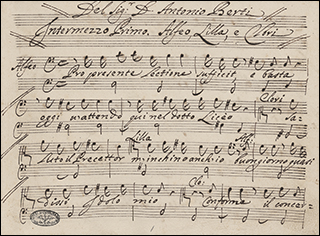 Del Sig.r D. Antonio Berti
Intermezzo Primo. Alfeo, Lilla, e Clori
Alfeo
Pro presente Lectione sufficit, e basta
Clori
oggi v'attendo qui nel dotto Liceo Sa-
Lilla Alf:
luto il Precettor m'inchino anch'io buon giorno quasi
Clo:
dissi Idolo mio Conforme il concer-